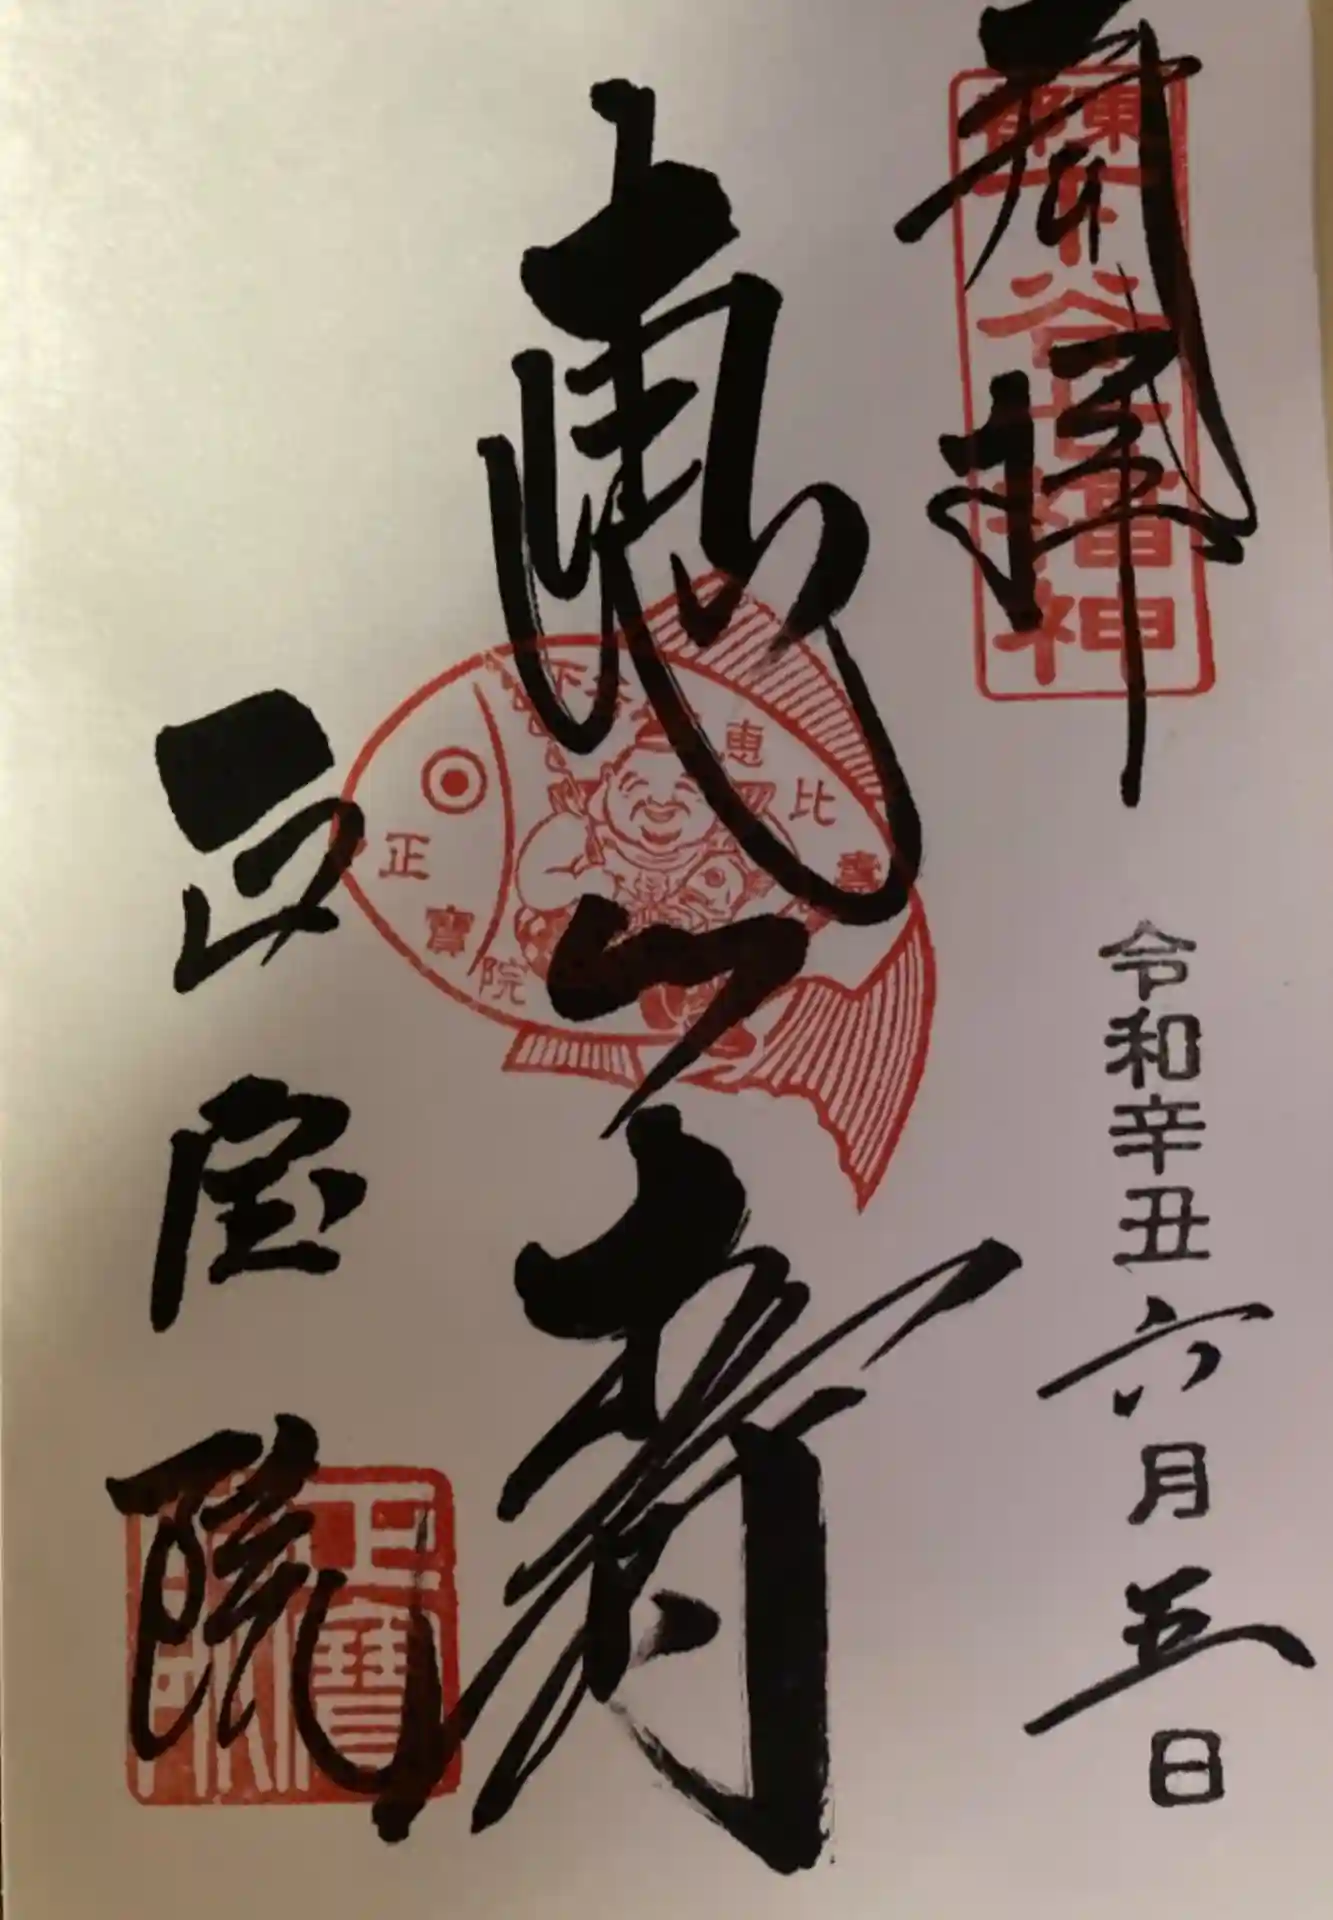 奉拝
東都
下谷七福神
令和辛丑六月五日
恵比寿
下谷
恵比寿
正寶院
正宝院
正寶院